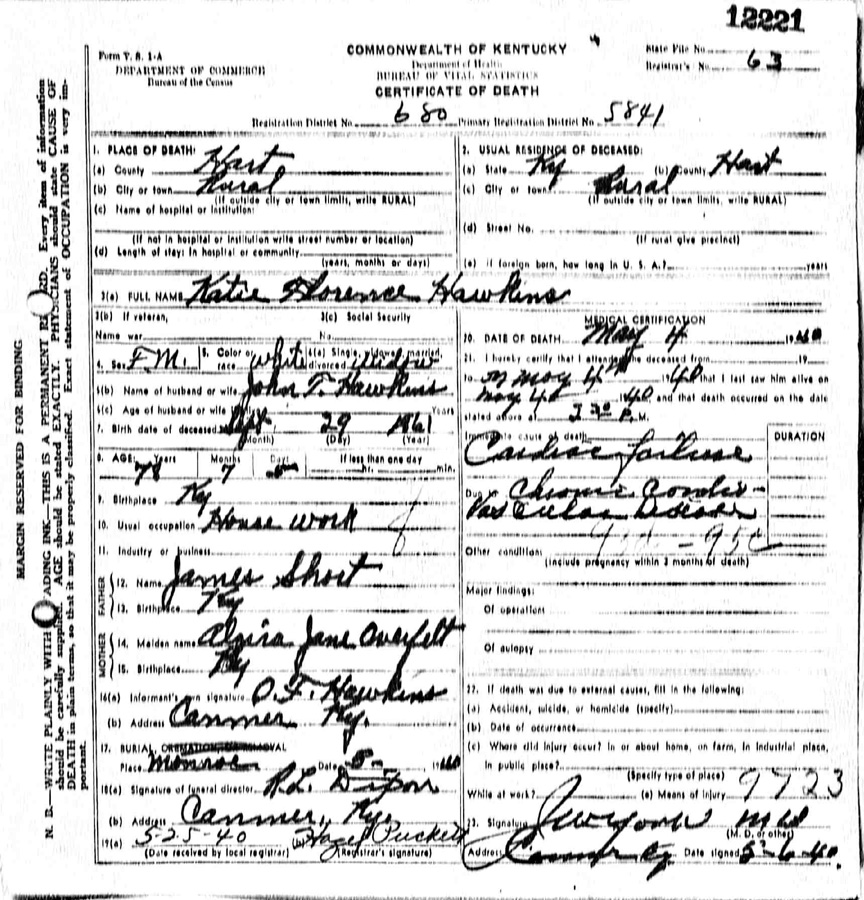 12221
Form V. S. 1-A
DEPARTMENT OF COMMERCE
Bureau of the Census
COMMONWEALTH OF KENTUCKY
Department of Health
BUREAU OF VITAL STATISTICS
CERTIFICATE OF DEATH
State File No.
Registrar's No. 63
Registration District No. 680 Primary Registration District No. 5841
MARGIN RESERVED FOR BINDING
N. B.—WRITE PLAINLY WITH ADING INK—THIS IS A PERMANENT RE RD. Every item of information
should be carefully supplied. AGE should be stated EXACTLY. PHYSICIANS should state CAUSE OF
DEATH in plain terms, so that it may be properly classified. Exact statement of OCCUPATION is very im-
portant.
1. PLACE OF DEATH:
(a) County Hart
(b) City or town Rural
(If outside city or town limits, write RURAL)
(c) Name of hospital or institution:
(If not in hospital or institution write street number or location)
(d) Length of stay: In hospital or community
(years, months or days)
2. USUAL RESIDENCE OF DECEASED:
(a) State Ky (b) County Hart
(c) City or town Rural
(If outside city or town limits, write RURAL)
(d) Street No.
(If rural give precinct)
(e) If foreign born, how long in U. S. A.? years
3(a) FULL NAME Katie Florence Hawkins
3(b) If veteran, 3(c) Social Security
Name war No.
4. Sex F.M. 5. Color or race White 6(a) Single, widowed, married, divorced Widow
6(b) Name of husband or wife John T. Hawkins
6(c) Age of husband or wife Years
7. Birth date of deceased Sept 29 1861
(Month) (Day) (Year)
8. AGE: Years Months Days If less than one day
78 7 5 hr. min.
9. Birthplace Ky
10. Usual occupation House work
11. Industry or business
FATHER
12. Name James Short
13. Birthplace Ky
MOTHER
14. Maiden name Alzira Jane Overfelt
15. Birthplace Ky
16(a) Informant's own signature O. F. Hawkins
(b) Address Canmer Ky.
17. BURIAL, CREMATION, OR REMOVAL
Place Monroe Date 5- 1940
18(a) Signature of funeral director R. L. Dixon
(b) Address Canmer, Ky.
19(a) 5-25-40 (b) Hazel Puckett
(Date received by local registrar) (Registrar's signature)
MEDICAL CERTIFICATION
20. DATE OF DEATH May 4 1940
21. I hereby certify that I attended the deceased from 19
to on May 4th 1940 that I last saw him alive on
May 4th 1940 and that death occurred on the date
stated above at 2 30 P. M.
Immediate cause of death DURATION
Cardiac failure
Due to Chronic Cardio-
Vascular disease
95c
Other condition:
(Include pregnancy within 3 months of death)
Major findings:
Of operations
Of autopsy
22. If death was due to external causes, fill in the following:
(a) Accident, suicide, or homicide (specify)
(b) Date of occurrence
(c) Where did injury occur? In or about home, on farm, in industrial place,
in public place?
(Specify type of place)
While at work? (e) Means of injury 9723
23. Signature MD
(M. D. or other)
Address Canmer Ky Date signed 5-6-40.